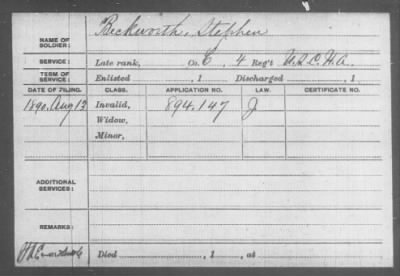 NAME OF SOLDIER: Beckworth, Stephen
SERVICE: Late rank, Co. E, 4 Reg't U.S.C.H.A.
TERM OF SERVICE: Enlisted , 1 Discharged , 1
DATE OF FILING. CLASS. APPLICATION NO. LAW. CERTIFICATE NO.
1890. Aug 13 Invalid, 894.147 J
Widow,
Minor,
ADDITIONAL SERVICES:
REMARKS:
Died , 1 , at